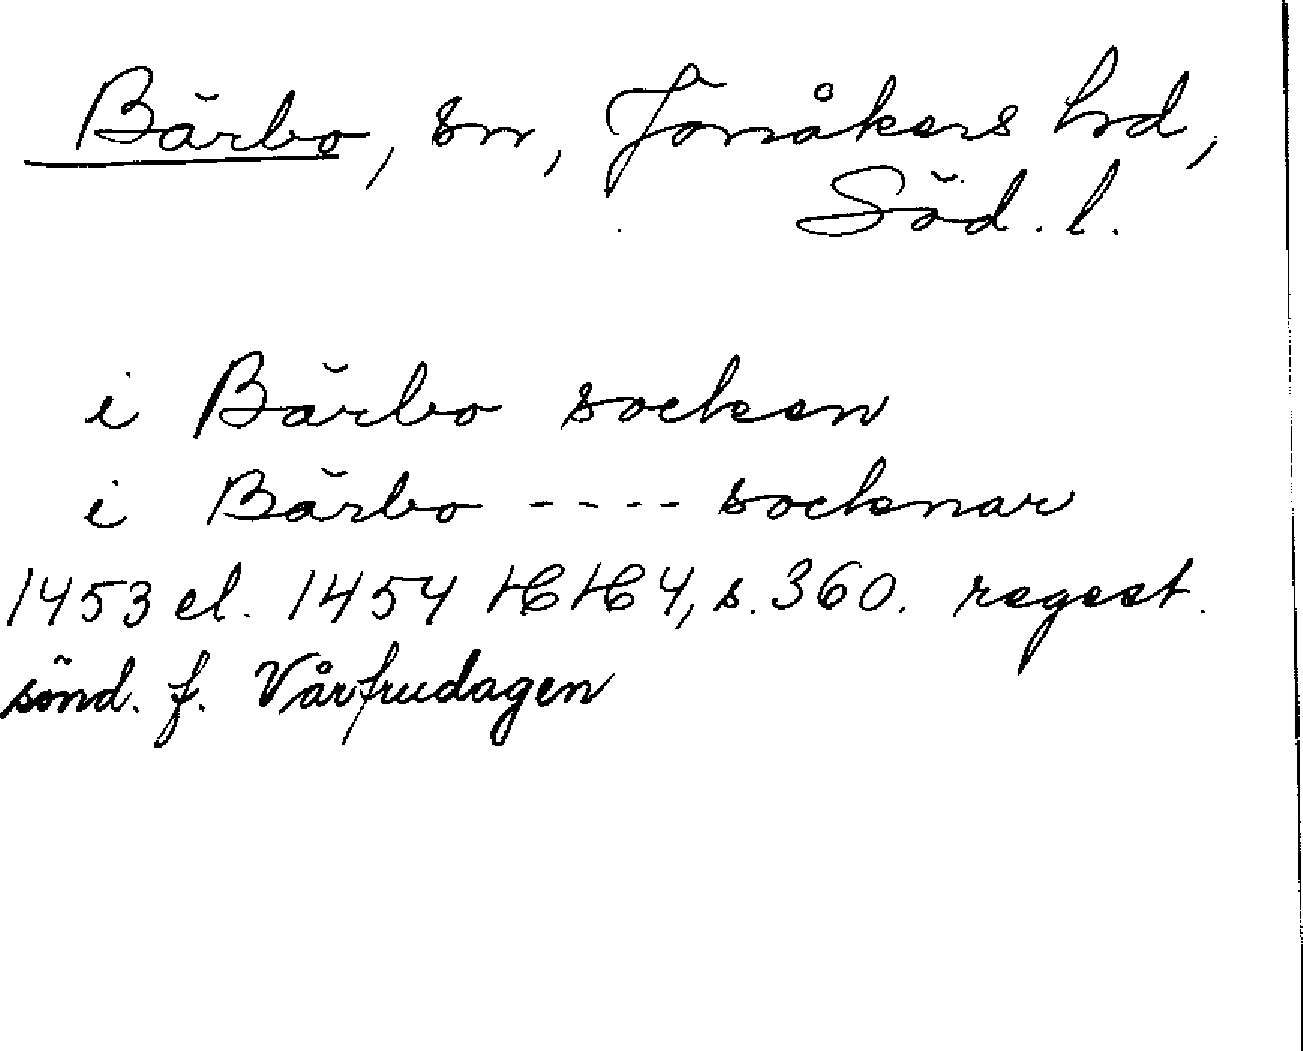 Bärbo, sn, Jonåkers hd,
Söd. l.
i Bärbo socken
i Bärbo ---- socknar
1453 el. 1454 HH 4, s. 360. regest.
sönd. f. Vårfrudagen